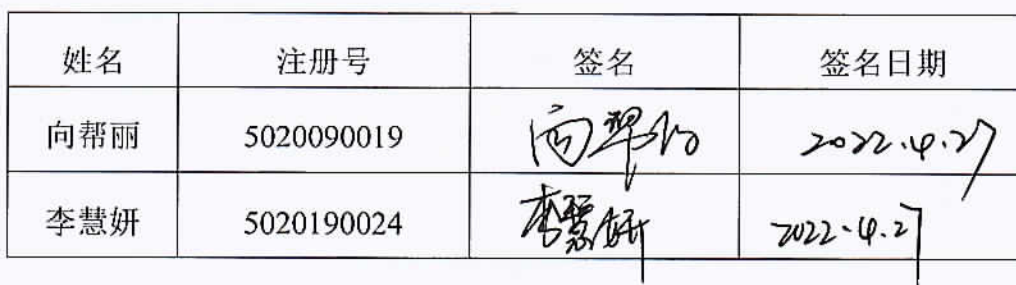 姓名 注册号 签名 签名日期
向帮丽 5020090019 向帮丽 2022.4.27
李慧妍 5020190024 李慧妍 2022.4.27